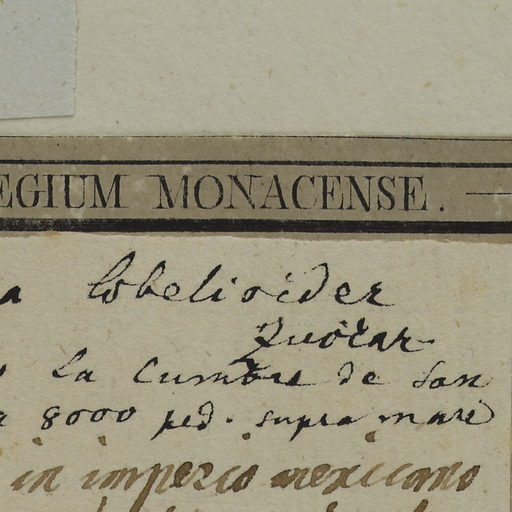 EGIUM MONACENSE.
a lobelioides
Zuccar
La Cumbre de San
8000 ped. supra mare
in imperio mexicano